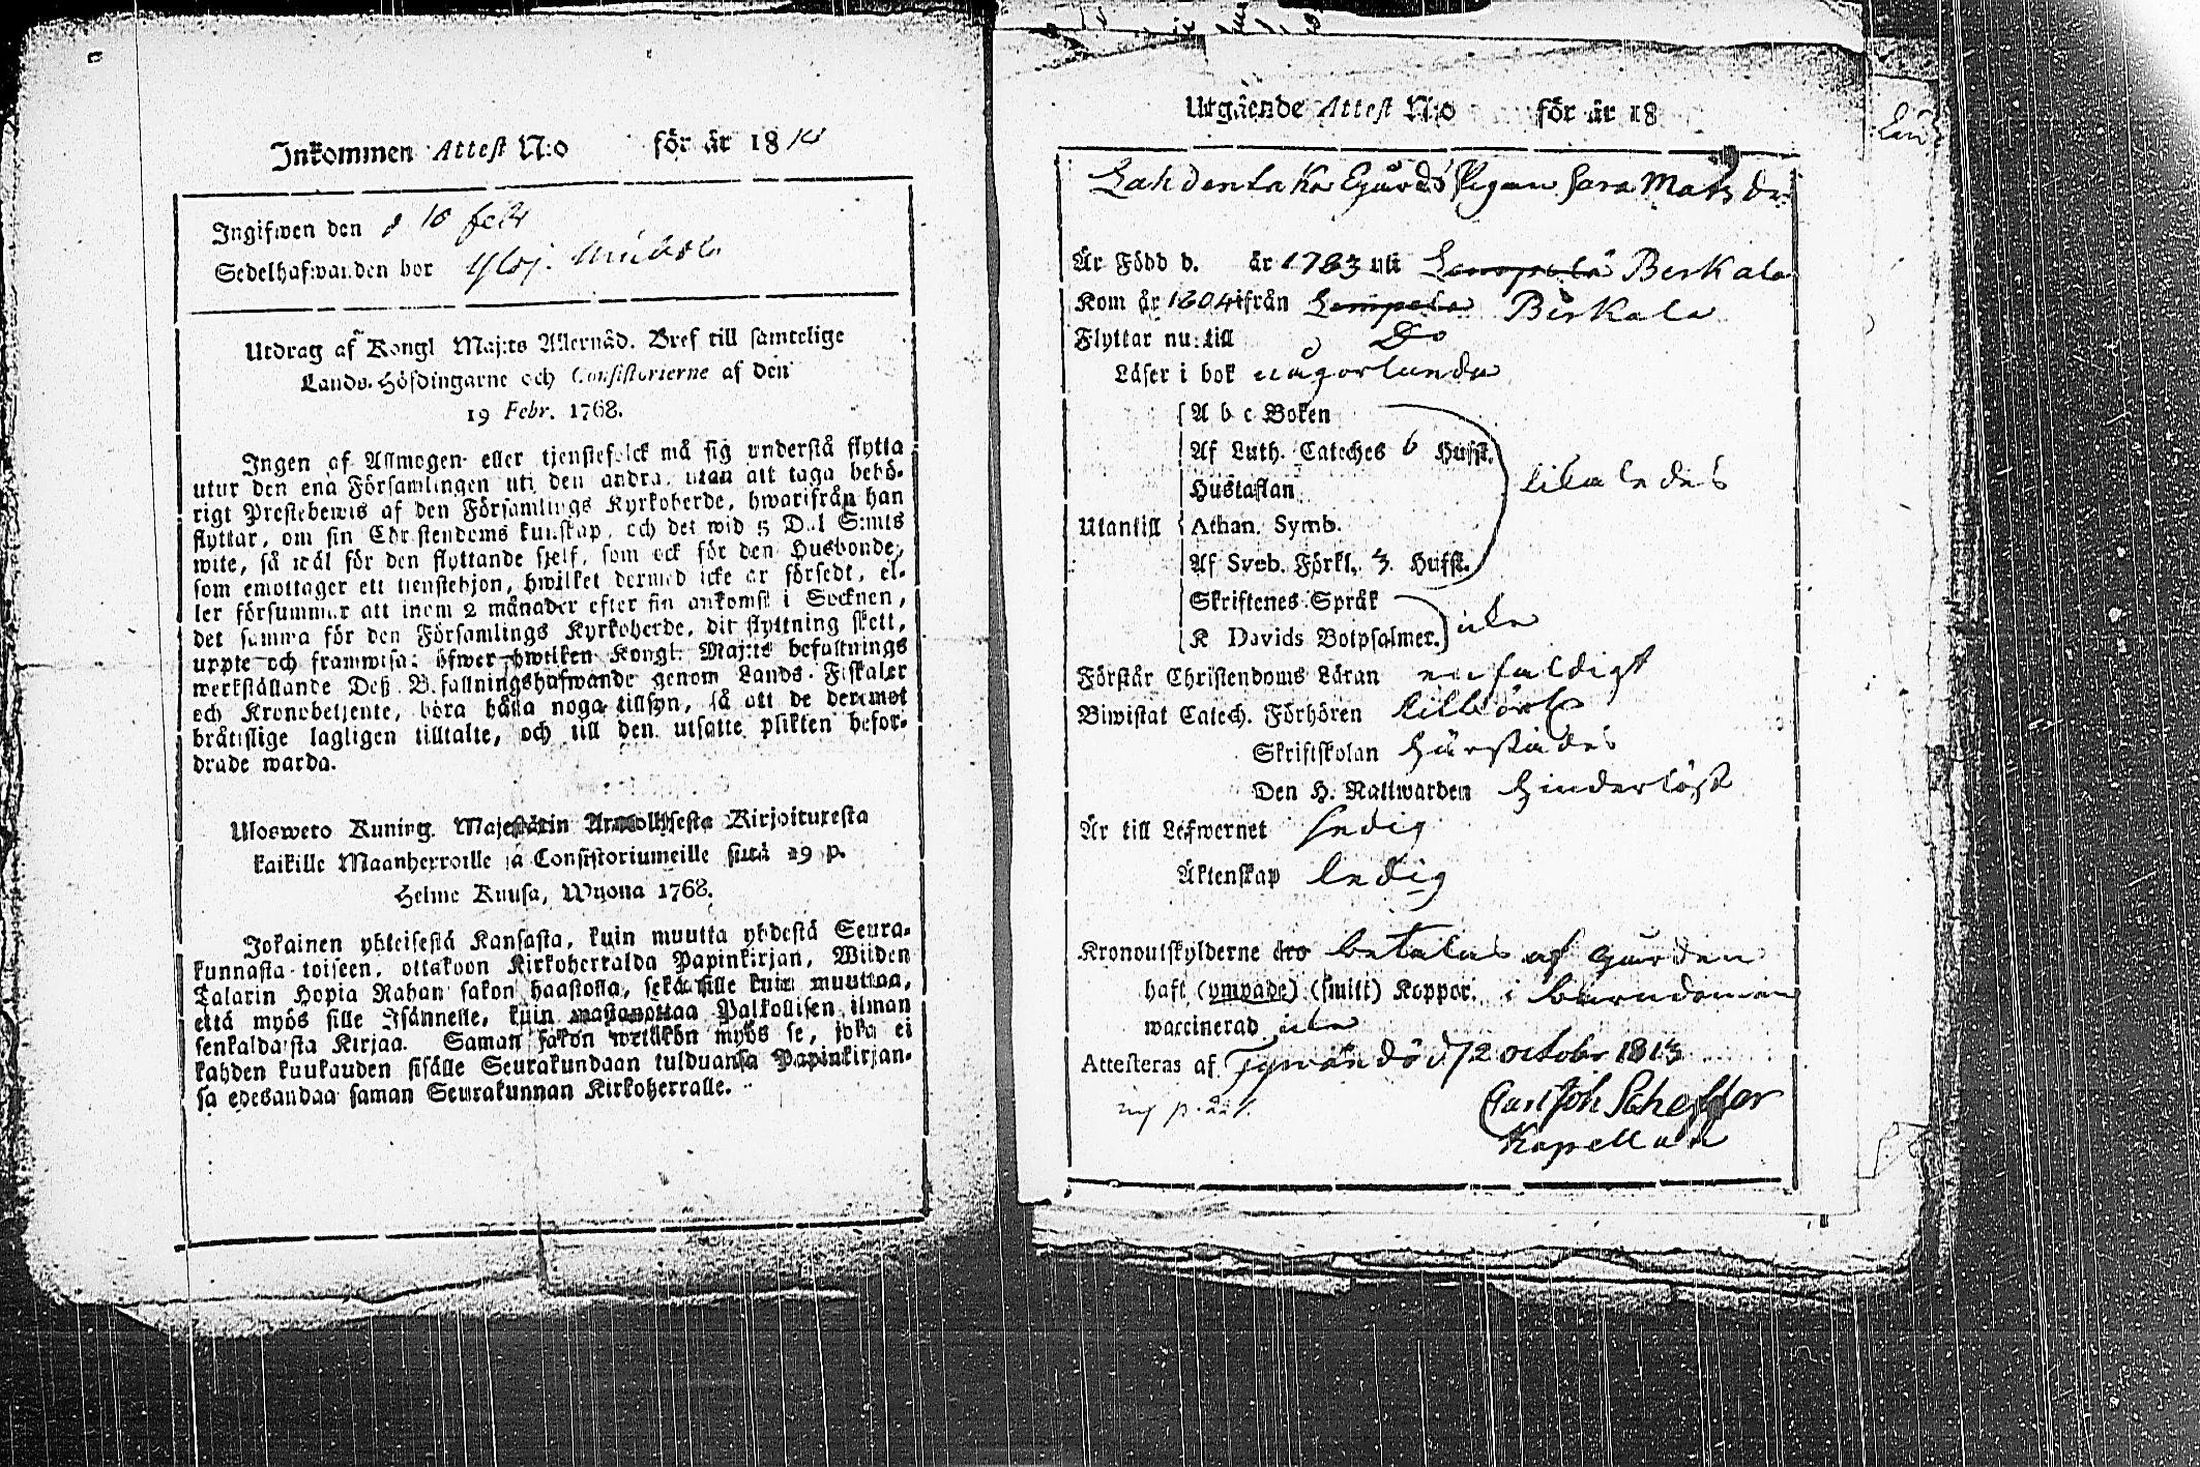 Inkommen Attest N:o för år 18
Ingifwen den 10 febr
Sedelhafwanden bor Yloj.
Utdrag af Kongl Maj:ts Allernåd. Bref till samtelige
Lands-Höfdingarne och Consistorierne af den
19 Febr. 1768.
Ingen af Allmogen eller tjenstefolck må sig understå flytta
utur den ena Församlingen uti den andra, utan att taga behö-
rigt Prestebewis af den Församlings Kyrkoherde, hwarifrån han
flyttar, om sin Christendoms kunskap, och det wid 5 Dal S:mts
wite, så wäl för den flyttande sjelf, som ock för den Husbonde,
som emottager ett tienstehjon, hwilket dermed icke är försedt, el-
ler försummar att inom 2 månader efter sin ankomst i Socknen,
det samma för den Församlings Kyrkoherde, dit flyttning skett,
uppte och framwisa: öfwer hwilken Kongl. Maj:ts befallnings
werkställande Deß Befallningshafwande genom Lands-Fiskaler
och Kronobetjente, böra hålla noga tillsyn, så att de deremot
bråtislige lagligen tilltalte, och till den utsatte plikten befor-
drade warda.
Ulosweto Kuning. Majestätin Armollisesta Kirjoituxesta
kaikille Maanherroille ja Consistoriumeille siitä 19 p.
Helme Kuusa, Wuona 1768.
Jokainen yhteisestä Kansasta, kuin muutta yhdestä Seura-
kunnasta toiseen, ottakoon Kirkoherralda Papinkirjan, Wiiden
Talarin Hopia Rahan sakon haastolla, sekä sille kuin muuttaa,
että myös sille Isännelle, kuin wastanottaa Palkollisen ilman
senkaldaista Kirjaa. Saman sakon wetäkön myös se, joka ei
kahden kuukauden sisälle Seurakundaan tulduansa Papinkirjan-
sa edesandaa saman Seurakunnan Kirkoherralle.
Utgående Attest N:o för år 18
Lahdenta Ka Egurds Pigan Sara Mats dr
Är Född d. år 1783 uti Lempelä Berkala
Kom år 1804 ifrån Lempela Birkala
Flyttar nu till Do
Läser i bok någorlunda
A b c Boken
Af Luth. Cateches 6 Hufst.
Hustaflan likaledes
Utantill Athan. Symb.
Af Sveb. Förkl. 3. Hufst.
Skriftenes Språk
K Davids Botpsalmer. icke
Förstår Christendoms Läran enfaldigt
Biwistat Catech. Förhören tillbörl
Skriftskolan härstädes
Den H. Nattwarden hinderlöst
Är till Lefwernet sedig
Äktenskap ledig
Kronoutskylderne äro betalas af gården
haft (ympade) (smitt) Koppor. i barndomen
waccinerad icke
Attesteras af Tyrvändö d 12 octobr 1813
Carl Joh Scheffer
Kapellan